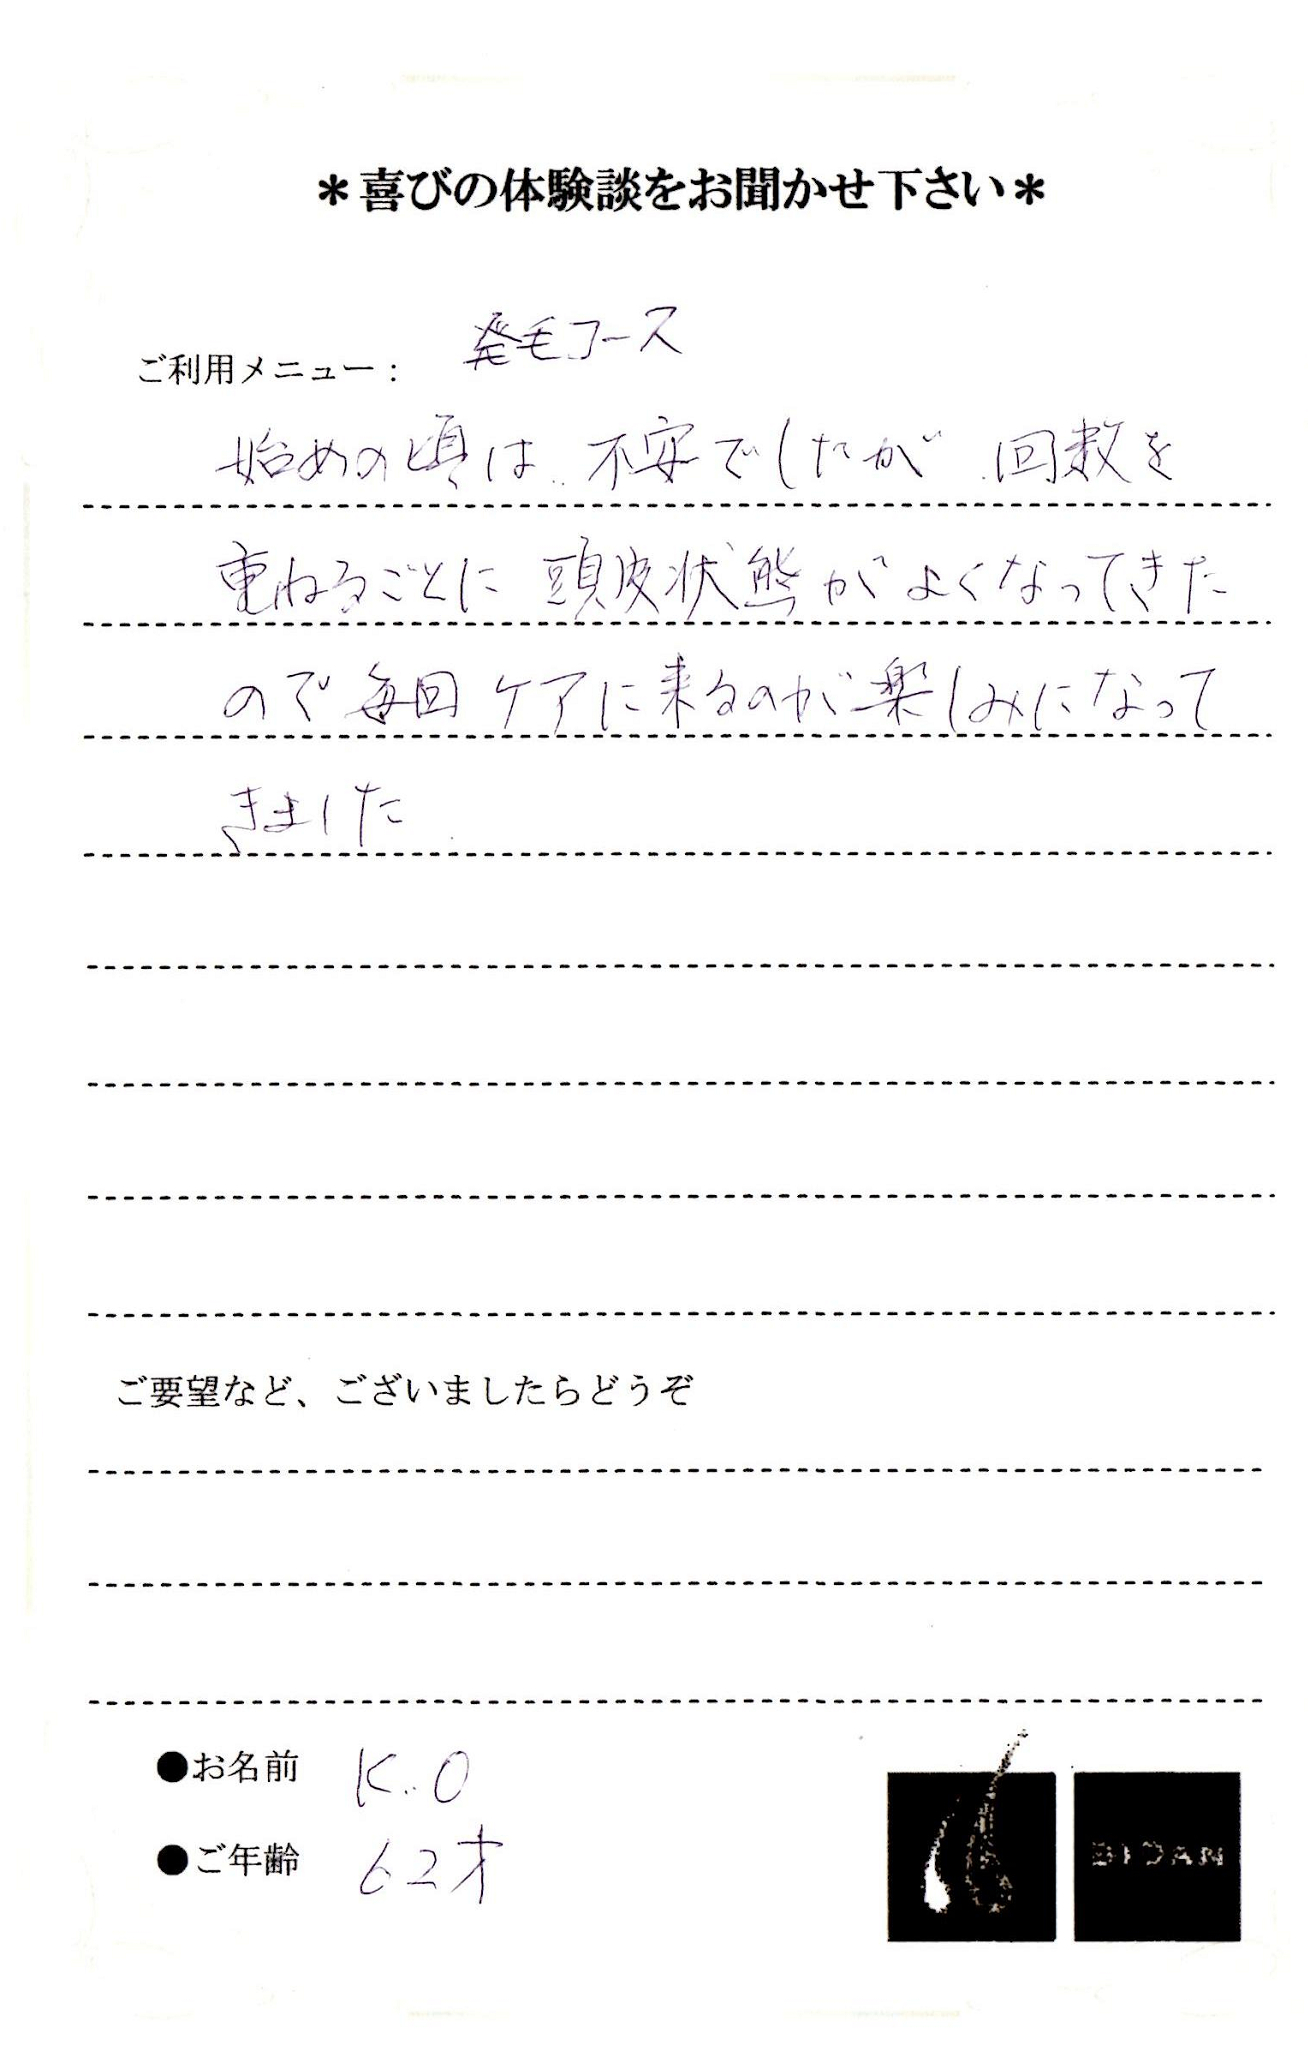 ＊喜びの体験談をお聞かせ下さい＊
ご利用メニュー： 発毛コース
始めの頃は 不安でしたが 回数を
重ねるごとに 頭皮状態がよくなってきた
ので 毎回 ケアに来るのが楽しみになって
きました
ご要望など、ございましたらどうぞ
●お名前 K.O
●ご年齢 62才
BIDAN